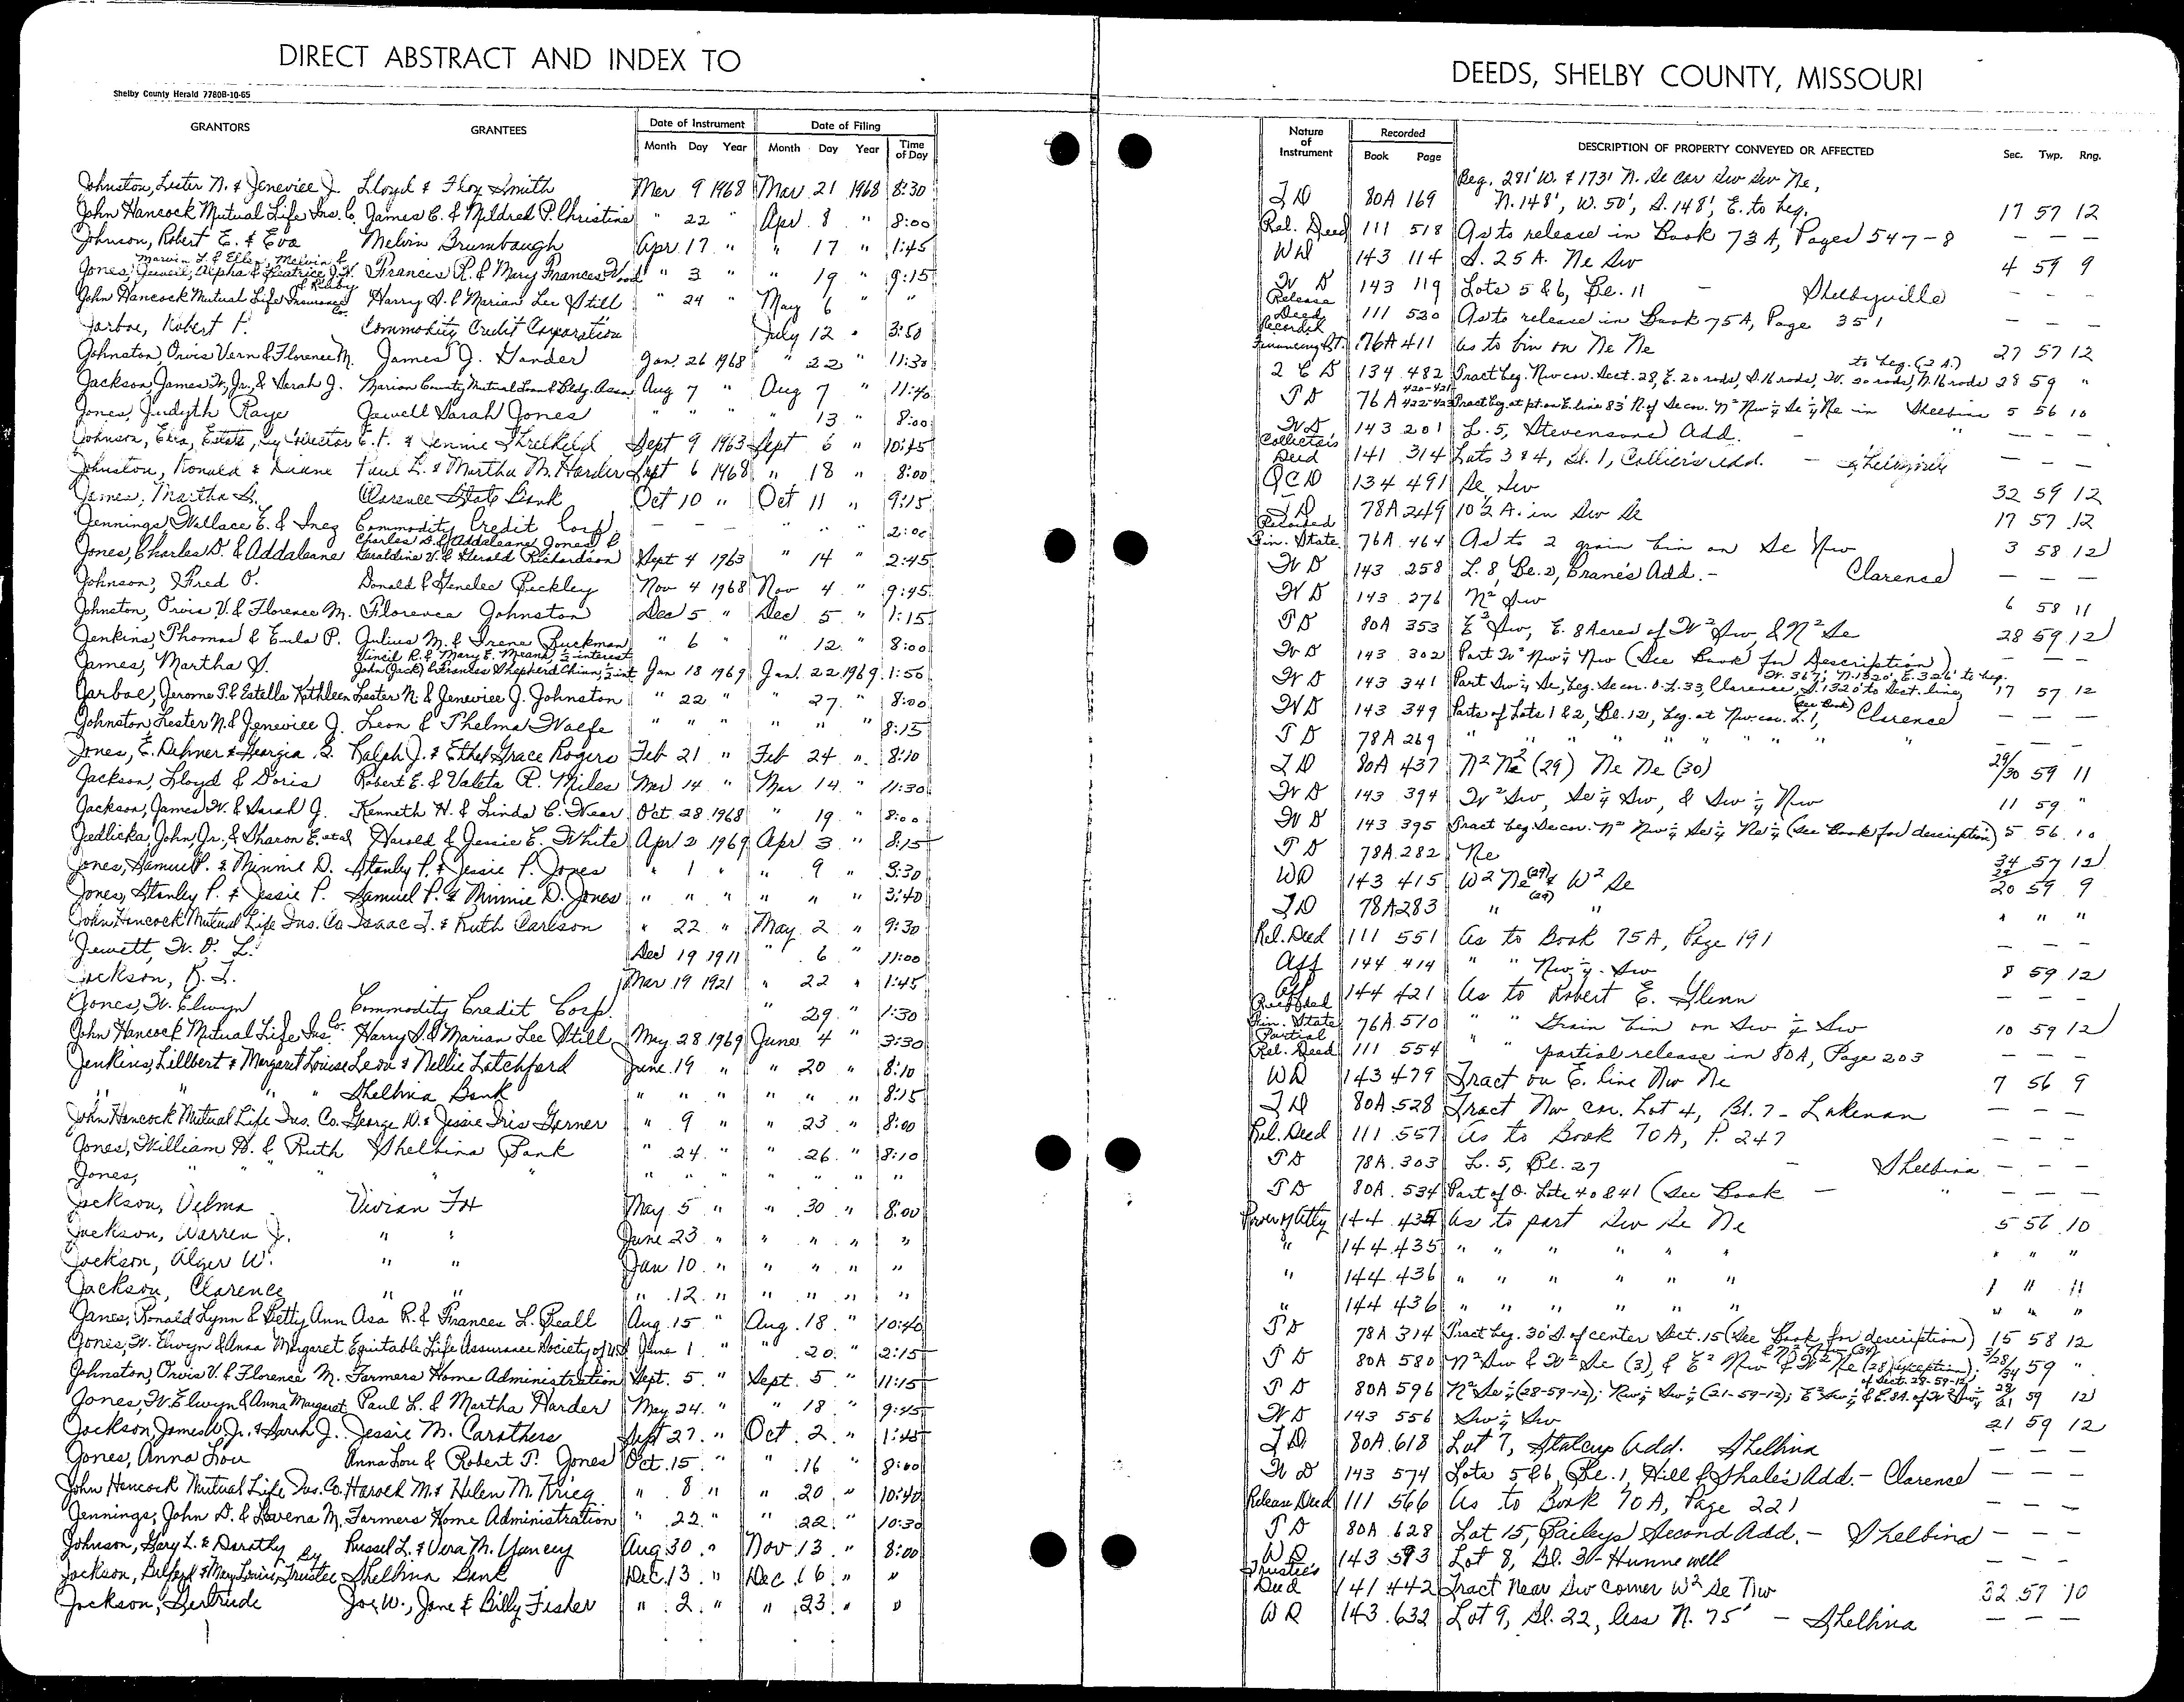 DIRECT ABSTRACT AND INDEX TO
Shelby County Herald 7780B-10-65
GRANTORS GRANTEES Date of Instrument Date of Filing
Month Day Year Month Day Year Time of Day
Johnston, Lester N. & Jeneviee J. Lloyd & Floy Smith Mar 9 1968 Mar 21 1968 8:30
John Hancock Mutual Life Ins. Co. James C. & Mildred P. Christine " 22 " Apr 8 " 8:00
Johnson, Robert E. & Eva Melvin Brumbaugh Apr 17 " " 17 " 1:45
Marvin L. & Ellen, Melvin &
Jones, Juweil, Alpha & Beatrice J. H. Francis R. & Mary Frances Wood " 3 " " 19 " 9:15
& Ruby
John Hancock Mutual Life Insurance Co. Harry S. & Marian Lee Still " 24 " May 6 " "
Jarboe, Robert F. Commodity Credit Corporation July 12 " 3:50
Johnston, Orvis Vern & Florence M. James J. Hander Jan. 26 1968 " 22 " 11:30
Jackson, James W., Jr., & Sarah J. Marion County Mutual Loan & Bldg. Assn Aug 7 " Aug 7 " 11:40
Jones, Judyth Raye Jewell Sarah Jones " " " " 13 " 8:00
Johnson, Ezra, Estate, by Director E. F. & Jennie Threlkeld Sept 9 1963 Sept 6 " 10:45
Johnston, Ronald & Duane Paul L. & Martha M. Harder Sept 6 1968 " 18 " 8:00
James, Martha S. Clarence State Bank Oct 10 " Oct 11 " 9:15
Jennings, Wallace E. & Inez Commodity Credit Corp. — — — " " " 2:00
Charles D. & Addaleane Jones &
Jones, Charles D. & Addaleane Geraldine V. & Gerald Richardson Sept 4 1963 " 14 " 2:45
Johnson, Fred O. Donald & Genelee Bickley Nov 4 1968 Nov 4 " 9:45
Johnston, Orvis V. & Florence M. Florence Johnston Dec 5 " Dec 5 " 1:15
Jenkins, Thomas & Eula P. Julius M. & Irene Buckman " 6 " 12 " 8:00
Vincil R. & Mary E. Means, ½ interest
James, Martha S. John (Jack) & Frances Shepherd Chinn, ½ int Jan 18 1969 Jan. 22 1969 1:50
Jarboe, Jerome P. & Estella Kathleen Lester N. & Jeneviee J. Johnston " 22 " 27. " 8:00
Johnston Lester N. & Jeneviee J. Leon & Thelma Wolfe " " " " " " 8:15
Jones, E. Dehner & Georgia S. Ralph J. & Ethel Grace Rogers Feb 21 " Feb 24 " 8:10
Jackson, Lloyd & Doris Robert E. & Valeta R. Miles Mar 14 " Mar 14 " 11:30
Jackson, James W. & Sarah J. Kenneth H. & Linda C. Wear Oct. 28 1968 " 19. " 8:00
Jedlicka, John, Jr., & Sharon E. et al Harold & Jessie E. White Apr 2 1969 Apr 3 " 8:15
Jones, Samuel P. & Minnie D. Stanley P. & Jessie P. Jones " 1 " " 9 " 3:30
Jones, Stanley P. & Jessie P. Samuel P. & Minnie D. Jones " " " " " " 3:40
John Hancock Mutual Life Ins. Co Isaac I. & Ruth Carlson " 22 " May 2 " 9:30
Jewett, W. O. L. Dec 19 1911 " 6 " 11:00
Jackson, R. I. Mar 19 1921 " 22 " 1:45
Jones, W. Elwyn Commodity Credit Corp. " 29. " 1:30
John Hancock Mutual Life Ins. Co. Harry S. & Marian Lee Still May 28 1969 June 4 " 3:30
Jenkins, Lillbert & Margaret Louise Leon & Nellie Latchford June 19 " " 20 " 8:10
" " " Shelbina Bank " " " " " " 8:15
John Hancock Mutual Life Ins. Co. George W. & Jessie Iris Garner " 9 " " 23 " 8:00
Jones, William H. & Ruth Shelbina Bank " 24. " " 26. " 8:10
Jones, " " " " " " " " " " "
Jackson, Velma Vivian Fox May 5 " " 30 " 8:00
Jackson, Warren J. " " June 23 " " " " "
Jackson, Alger W. " " Jan 10 " " " " "
Jackson, Clarence " " " 12 " " " " "
Janes, Ronald Lynn & Betty Ann Asa R. & Frances L. Beall Aug. 15 " Aug. 18 " 10:40
Jones, W. Elwyn & Anna Margaret Equitable Life Assurance Society of US June 1 " " 20. " 2:15
Johnston, Orvis V. & Florence M. Farmers Home Administration Sept. 5 " Sept. 5 " 11:15
Jones, W. Elwyn & Anna Margaret Paul L. & Martha Harder May 24. " " 18 " 9:45
Jackson, James W. Jr. & Sarah J. Jessie M. Carothers Sept 27. " Oct. 2. " 1:45
Jones, Anna Lou Anna Lou & Robert P. Jones Oct. 15 " " 16 " 8:00
John Hancock Mutual Life Ins. Co. Harold M. & Helen M. Krieg " 8 " " 20 " 10:40
Jennings, John D. & Lavena M. Farmers Home Administration " 22. " " 22. " 10:30
Johnson, Gary L. & Dorothy Russel L. & Vera M. Yancey Aug 30 " Nov 13. " 8:00
Jackson, Buford & Mary Louise, by Trustee Shelbina Bank Dec. 13 " Dec. 16 " "
Jackson, Gertrude Joe W., Jane & Billy Fisher " 2. " " 23. " "
DEEDS, SHELBY COUNTY, MISSOURI
Nature of Instrument Recorded DESCRIPTION OF PROPERTY CONVEYED OR AFFECTED Sec. Twp. Rng.
Book Page
Beg. 291' W. & 173' N. Se cor Sw Sw Ne,
T D 80A 169 N. 148', W. 50', S. 148', E. to beg. 17 57 12
Rel. Deed 111 518 As to release in Book 73A, Pages 547-8 — — —
WD 143 114 S. 25 A. Ne Sw 4 59 9
W D 143 119 Lots 5 & 6, Bl. 11 — Shelbyville — — —
Release Deed 111 520 As to release in Book 75A, Page 351 — — —
Recorded Financing St. 76A 411 As to bin on Ne Ne 27 57 12
to beg. (2 A.)
2 C D 134 482 Tract beg. Nw cor. Sect. 28, E. 20 rods, S. 16 rods, W. 20 rods, N. 16 rods 28 59 "
T D 76A 420-421 422-423 Tract beg. at pt. on E. line 83' N. of Se cor. N² Nw¼ Se¼ Ne in Shelbina 5 56 10
W D 143 201 L. 5, Stevensons Add. — " — — —
Collector's Deed 141 314 Lots 3 & 4, Bl. 1, Collier's Add. — — — —
Q C D 134 491 Se Sw 32 59 12
T D 78A 249 10½ A. in Sw Se 17 57 12
Recorded Fin. State. 76A 464 As to 2 grain bin on Se Nw 3 58 12
W D 143 258 L. 8, Bl. 2, Crane's Add. — Clarence — — —
W D 143 276 N² Sw 6 58 11
T D 80A 353 E² Sw, E. 8 Acres of W² Sw, & N² Se 28 59 12
W D 143 302 Part W² Nw¼ Nw (See Book for Description) — — —
W. 367', N. 1320', E. 326' to beg.
W D 143 341 Part Sw¼ Se, beg. Se cor. O. L. 33, Clarence, S. 1320' to Sect. line, 17 57 12
W D 143 349 Parts of Lots 1 & 2, Bl. 12, beg. at Nw. cor. L. 1, (See Book) Clarence — — —
T D 78A 269 " " " " " " " " — — —
T D 80A 437 N² Ne (29) Ne Ne (30) 29/30 59 11
W D 143 394 W² Sw, Se¼ Sw, & Sw¼ Nw 11 59 "
W D 143 395 Tract beg. Se cor. N² Nw¼ Se¼ Ne¼ (See Book for description) 5 56 10
T D 78A 282 Ne 34 57 12
WD 143 415 W² Ne (29) & W² Se (29) 20 59 9
T D 78A 283 " " " " "
Rel. Deed 111 551 As to Book 75A, Page 191 — — —
Aff 144 414 " " Nw¼ Sw 8 59 12
Aff 144 421 As to Robert E. Glenn — — —
Recorded Fin. State 76A 510 " " Grain bin on Sw¼ Sw 10 59 12
Partial Rel. Deed 111 554 " " partial release in 80A, Page 203 — — —
WD 143 479 Tract on E. line Nw Ne 7 56 9
T D 80A 528 Tract Nw cor. Lot 4, Bl. 7 - Lakenan — — —
Rel. Deed 111 557 As to Book 70A, P. 247 — — —
T D 78A 303 L. 5, Bl. 27 — Shelbina — — —
T D 80A 534 Part of O. Lots 40 & 41 (See Book — " — — —
Power of Atty 144 435 As to part Sw Se Ne 5 56 10
" 144 435 " " " " " " " " "
" 144 436 " " " " " " " " "
" 144 436 " " " " " " " " "
T D 78A 314 Tract beg. 30' S. of center Sect. 15 (See Book for description) 15 58 12
& N² Nw (34)
T D 80A 580 N² Sw & W² Se (3), & E² Nw & W² Ne (28) (exception); 3/28/34 59 "
of Sect. 28-59-12
T D 80A 596 N² Se¼ (28-59-12); Nw¼ Sw¼ (21-59-12); E² Sw¼ & E. 8 A. of W² Sw¼ 28 21 59 12
W D 143 556 Sw¼ Sw 21 59 12
T D 80A 618 Lot 7, Stalcup Add. Shelbina — — —
W D 143 574 Lots 5 & 6, Bl. 1, Hill & Shale's Add. - Clarence — — —
Release Deed 111 566 As to Book 70A, Page 221 — — —
T D 80A 628 Lot 15, Baileys Second Add. — Shelbina — — —
WD 143 593 Lot 8, Bl. 3 - Hunnewell — — —
Trustee's Deed 141 442 Tract Near Sw corner W² Se Nw 32 57 10
WD 143 632 Lot 9, Bl. 22, less N. 75' — Shelbina — — —